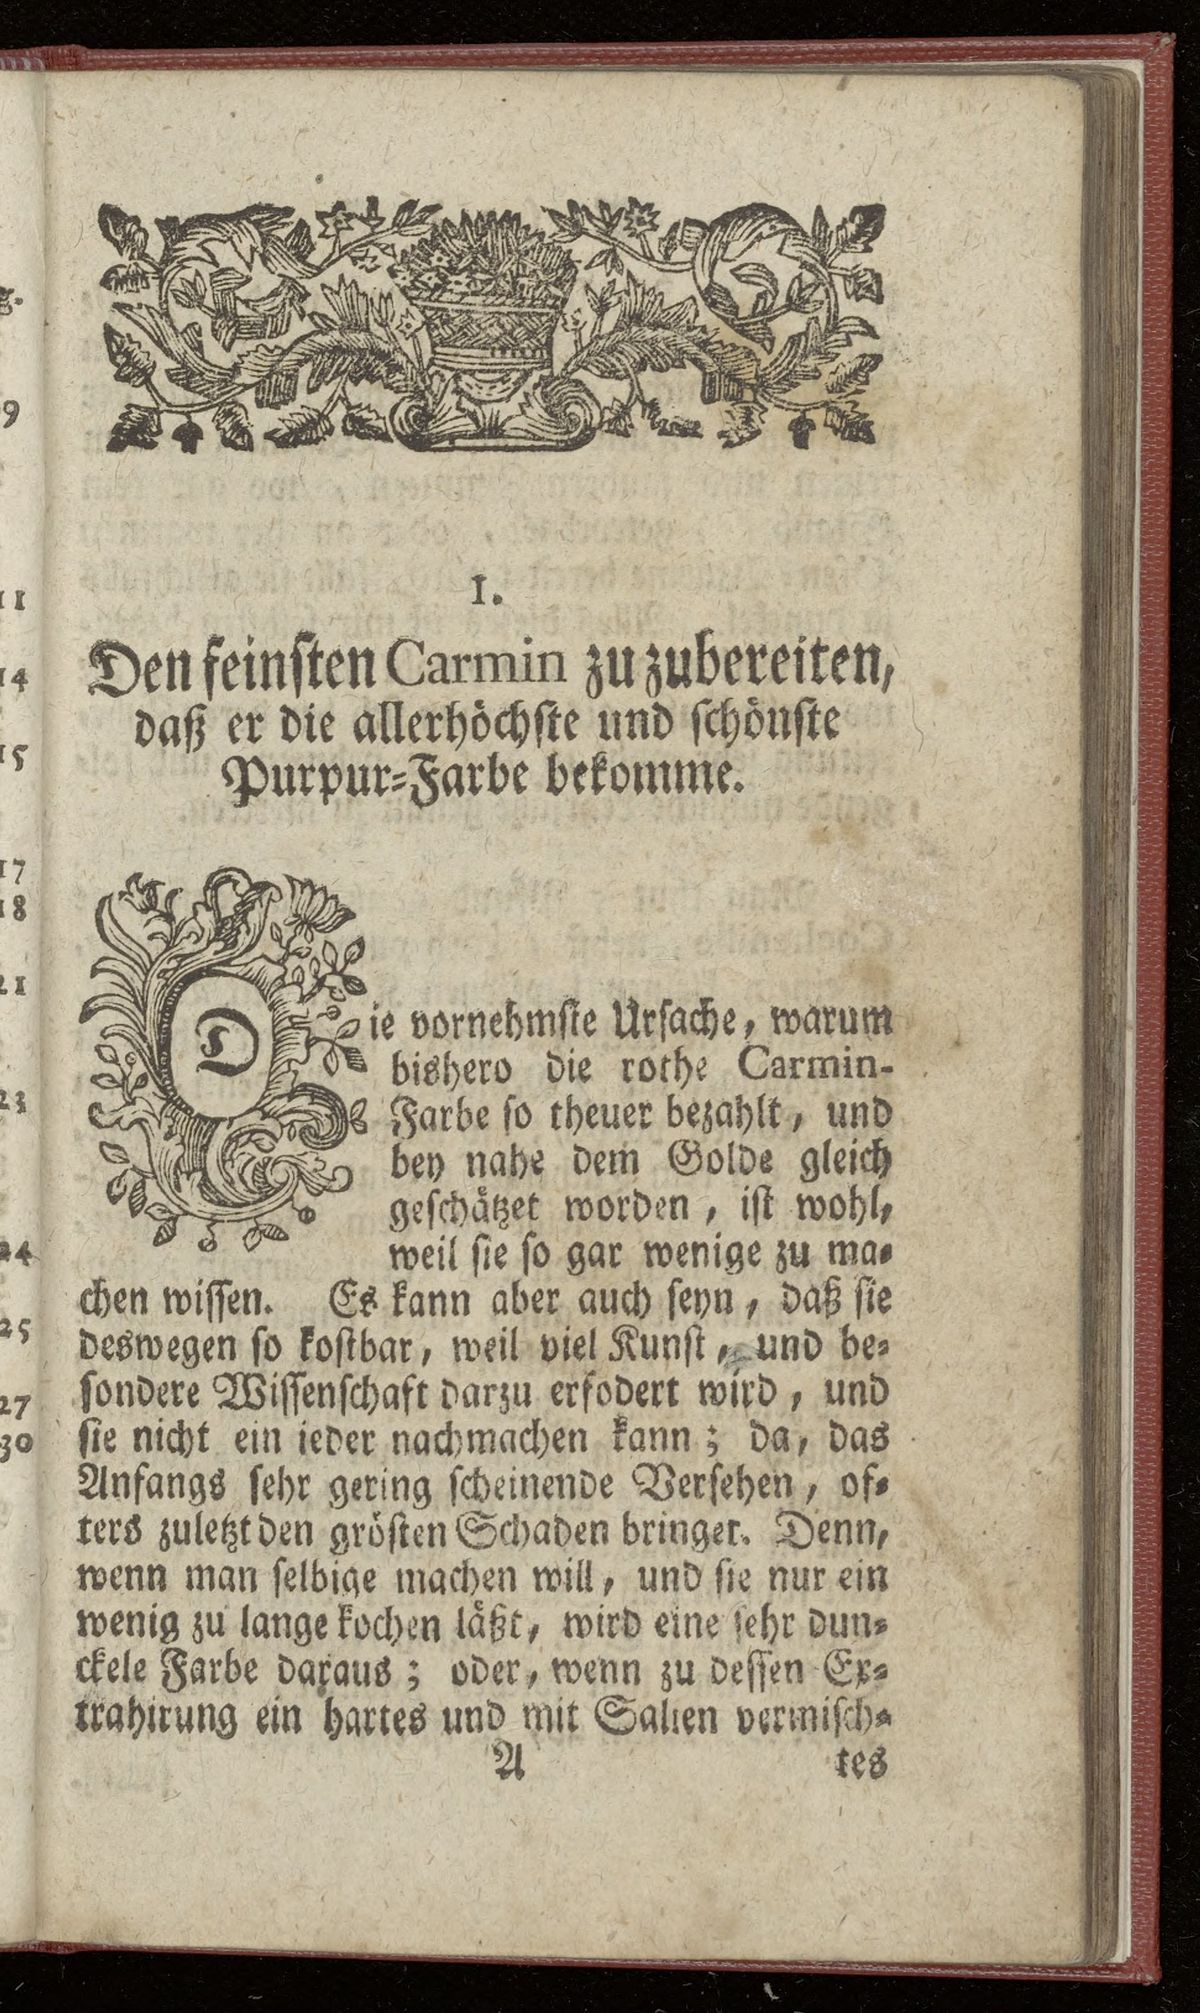 g.
9
11
14
15
17
18
21
23
24
25
27
30
I.
Den feinſten Carmin zu zubereiten,
daß er die allerhöchſte und ſchönſte
Purpur=Farbe bekomme.
Die vornehmſte Urſache, warum
bishero die rothe Carmin-
Farbe ſo theuer bezahlt, und
bey nahe dem Golde gleich
geſchätzet worden, iſt wohl,
weil ſie ſo gar wenige zu ma=
chen wiſſen. Es kann aber auch ſeyn, daß ſie
deswegen ſo koſtbar, weil viel Kunſt, und be=
ſondere Wiſſenſchaft darzu erfodert wird, und
ſie nicht ein ieder nachmachen kann; da, das
Anfangs ſehr gering ſcheinende Verſehen, of=
ters zuletzt den gröſten Schaden bringet. Denn,
wenn man ſelbige machen will, und ſie nur ein
wenig zu lange kochen läßt, wird eine ſehr dun=
ckele Farbe daraus; oder, wenn zu deſſen Ex=
trahirung ein hartes und mit Saltzen vermiſch=
A tes